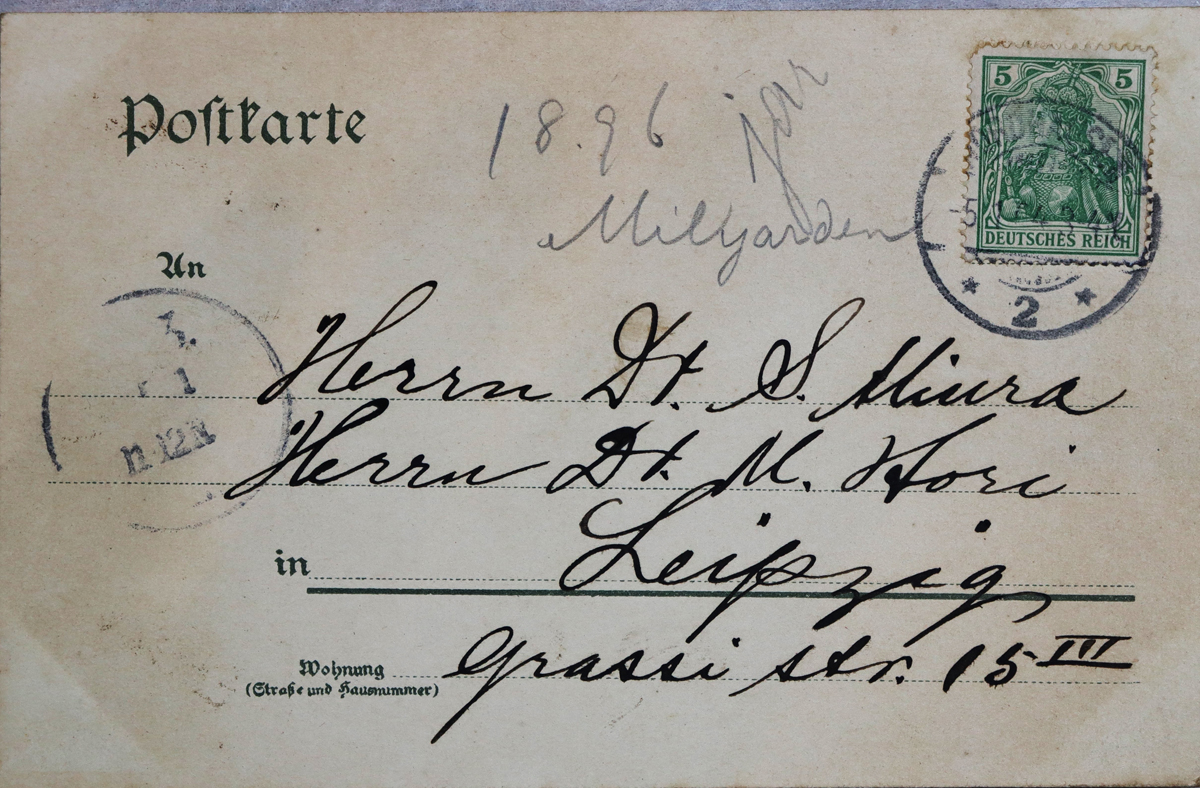 Postkarte
1896 jarr
Miltjarden
5 5
DEUTSCHES REICH
2
An
1
11-12 N.
Herrn Dr. S. Miura
Herrn Dr. M. Hori
in Leipzig
Wohnung Grassi str. 15 III
(Straße und Hausnummer)